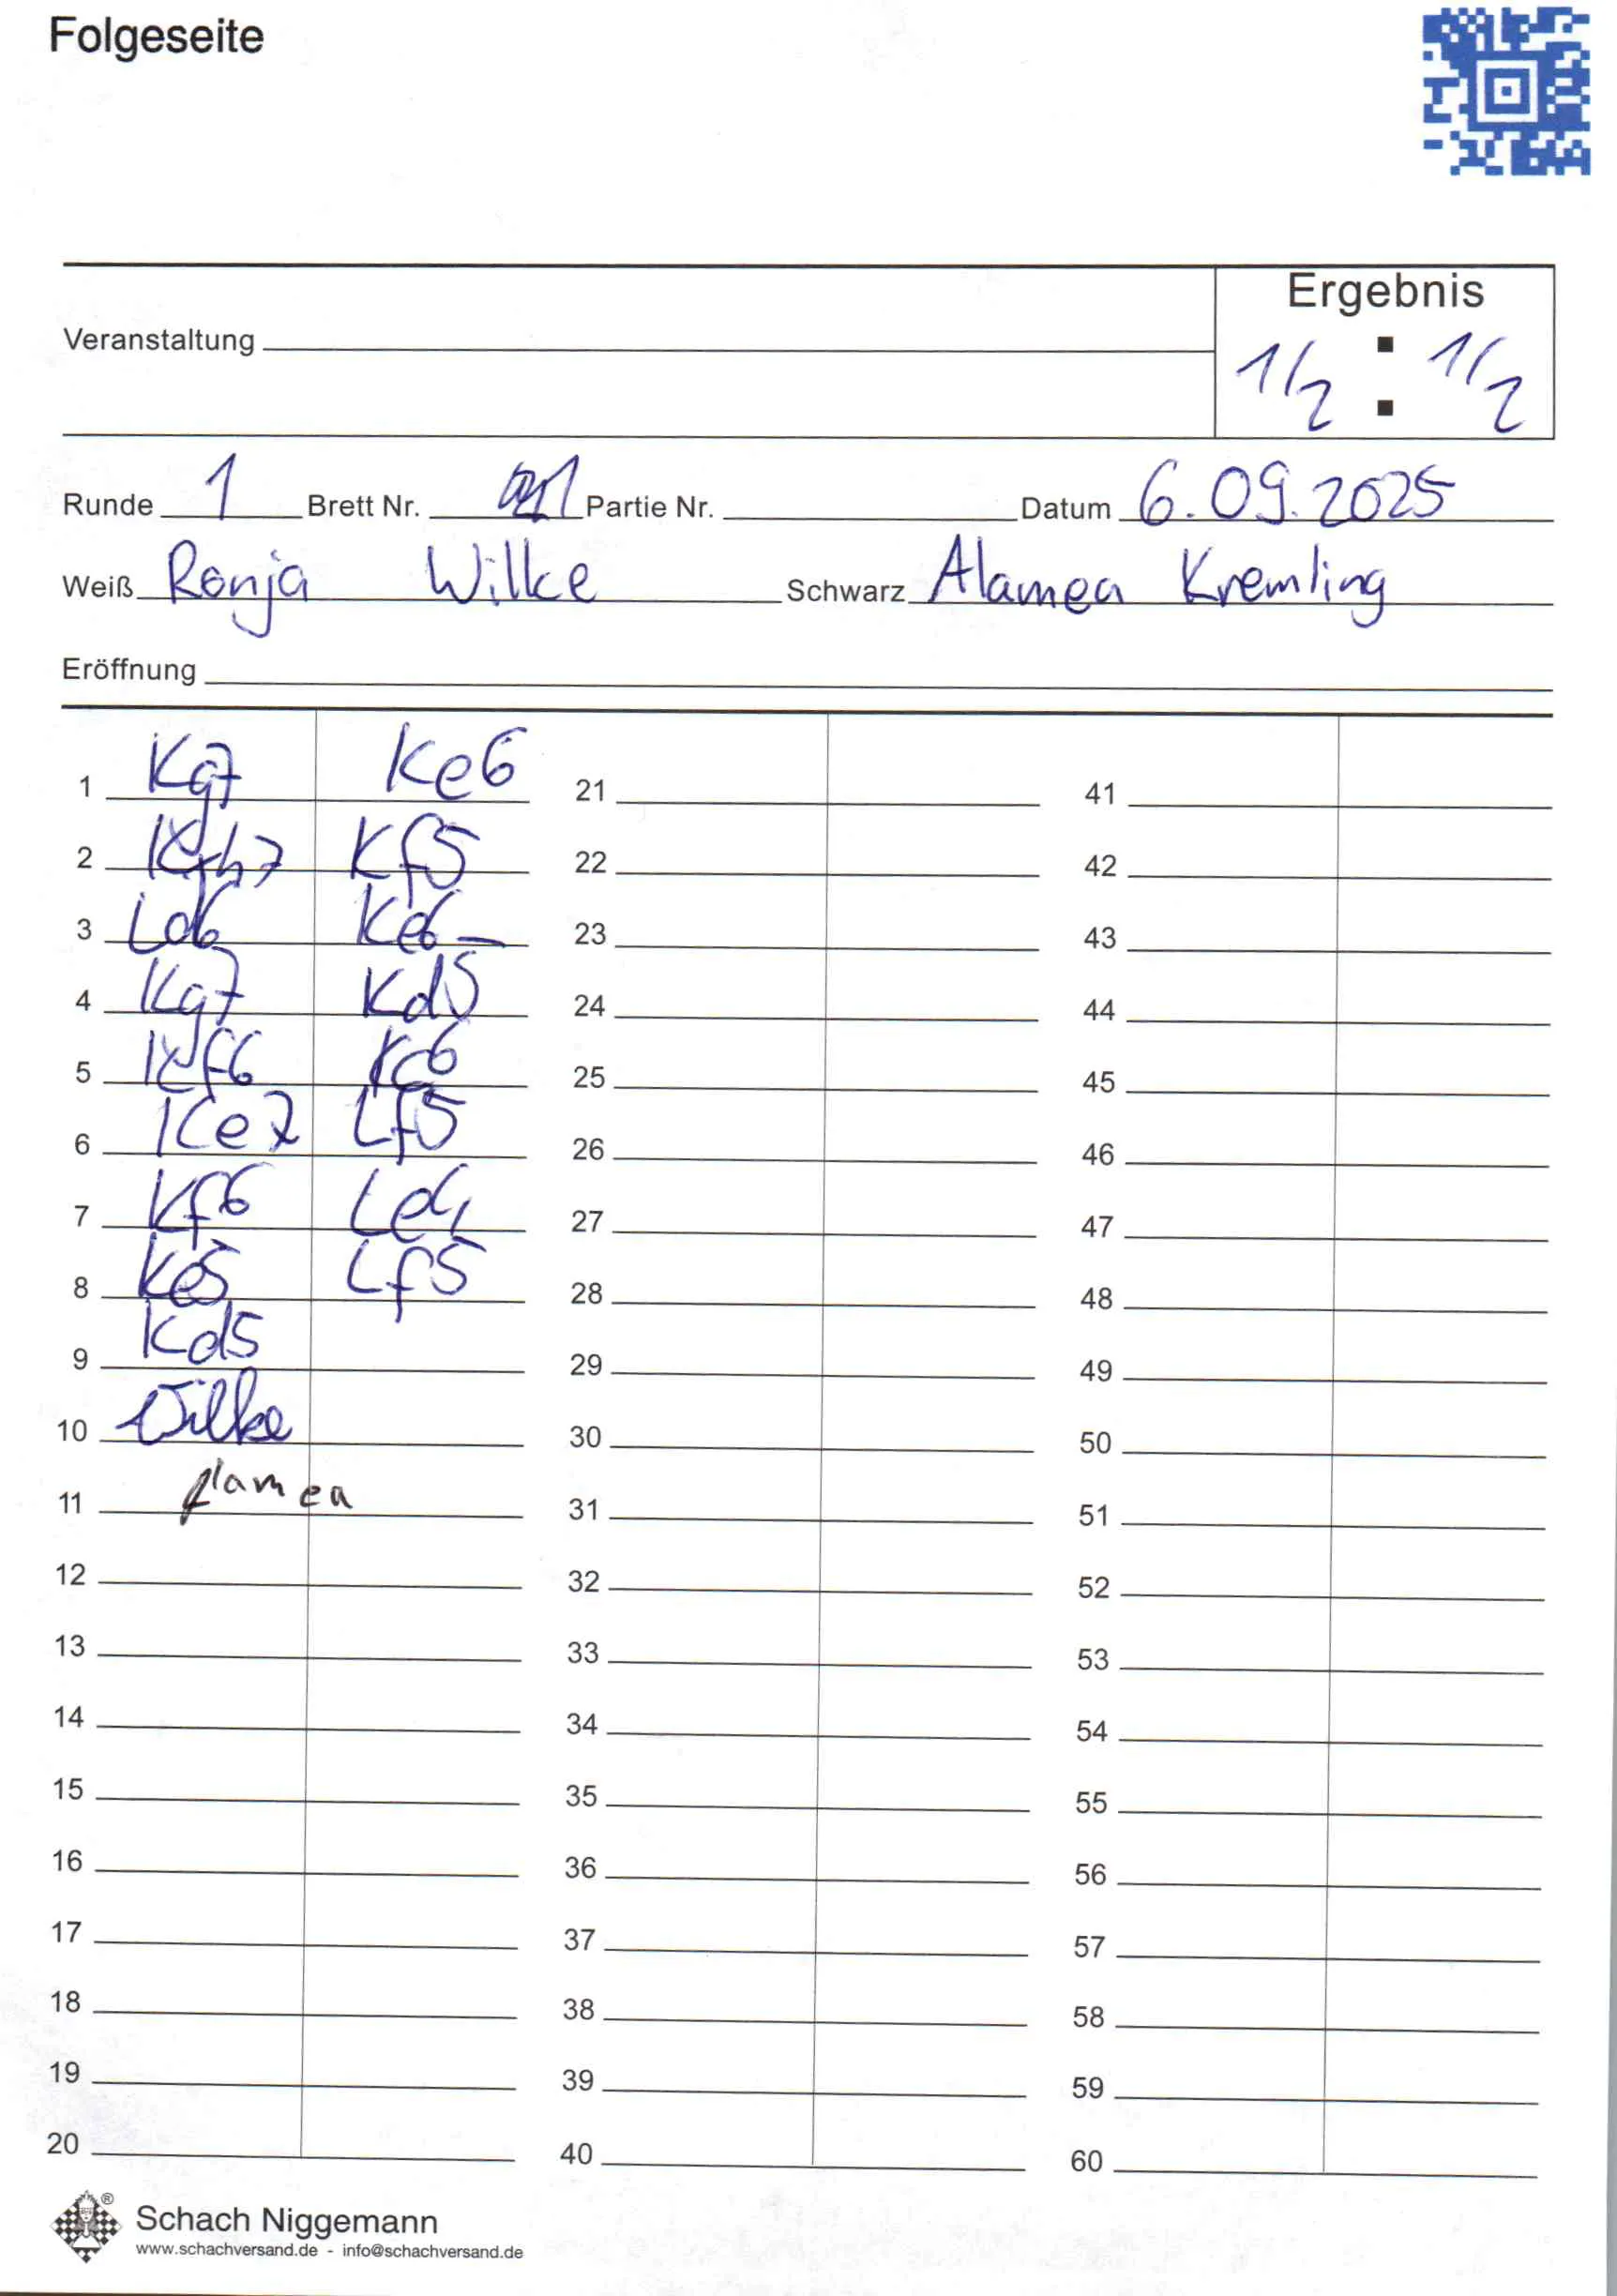 Folgeseite
Ergebnis
Veranstaltung
1/2 : 1/2
Runde 1 Brett Nr. 1 Partie Nr. Datum 6.09.2025
Weiß Ronja Wilke Schwarz Alamea Kremling
Eröffnung
1 Kg7 Ke6 21 41
2 Kxh7 Kf5 22 42
3 Ld6 Ke6 – 23 43
4 Kg7 Kd5 24 44
5 Kf6 Kc6 25 45
6 Ke7 Lf5 26 46
7 Kf6 Le4 27 47
8 Ke5 Lf5 28 48
9 Kd5 29 49
10 Wilke 30 50
11 Alamea 31 51
12 32 52
13 33 53
14 34 54
15 35 55
16 36 56
17 37 57
18 38 58
19 39 59
20 40 60
Schach Niggemann
www.schachversand.de - info@schachversand.de